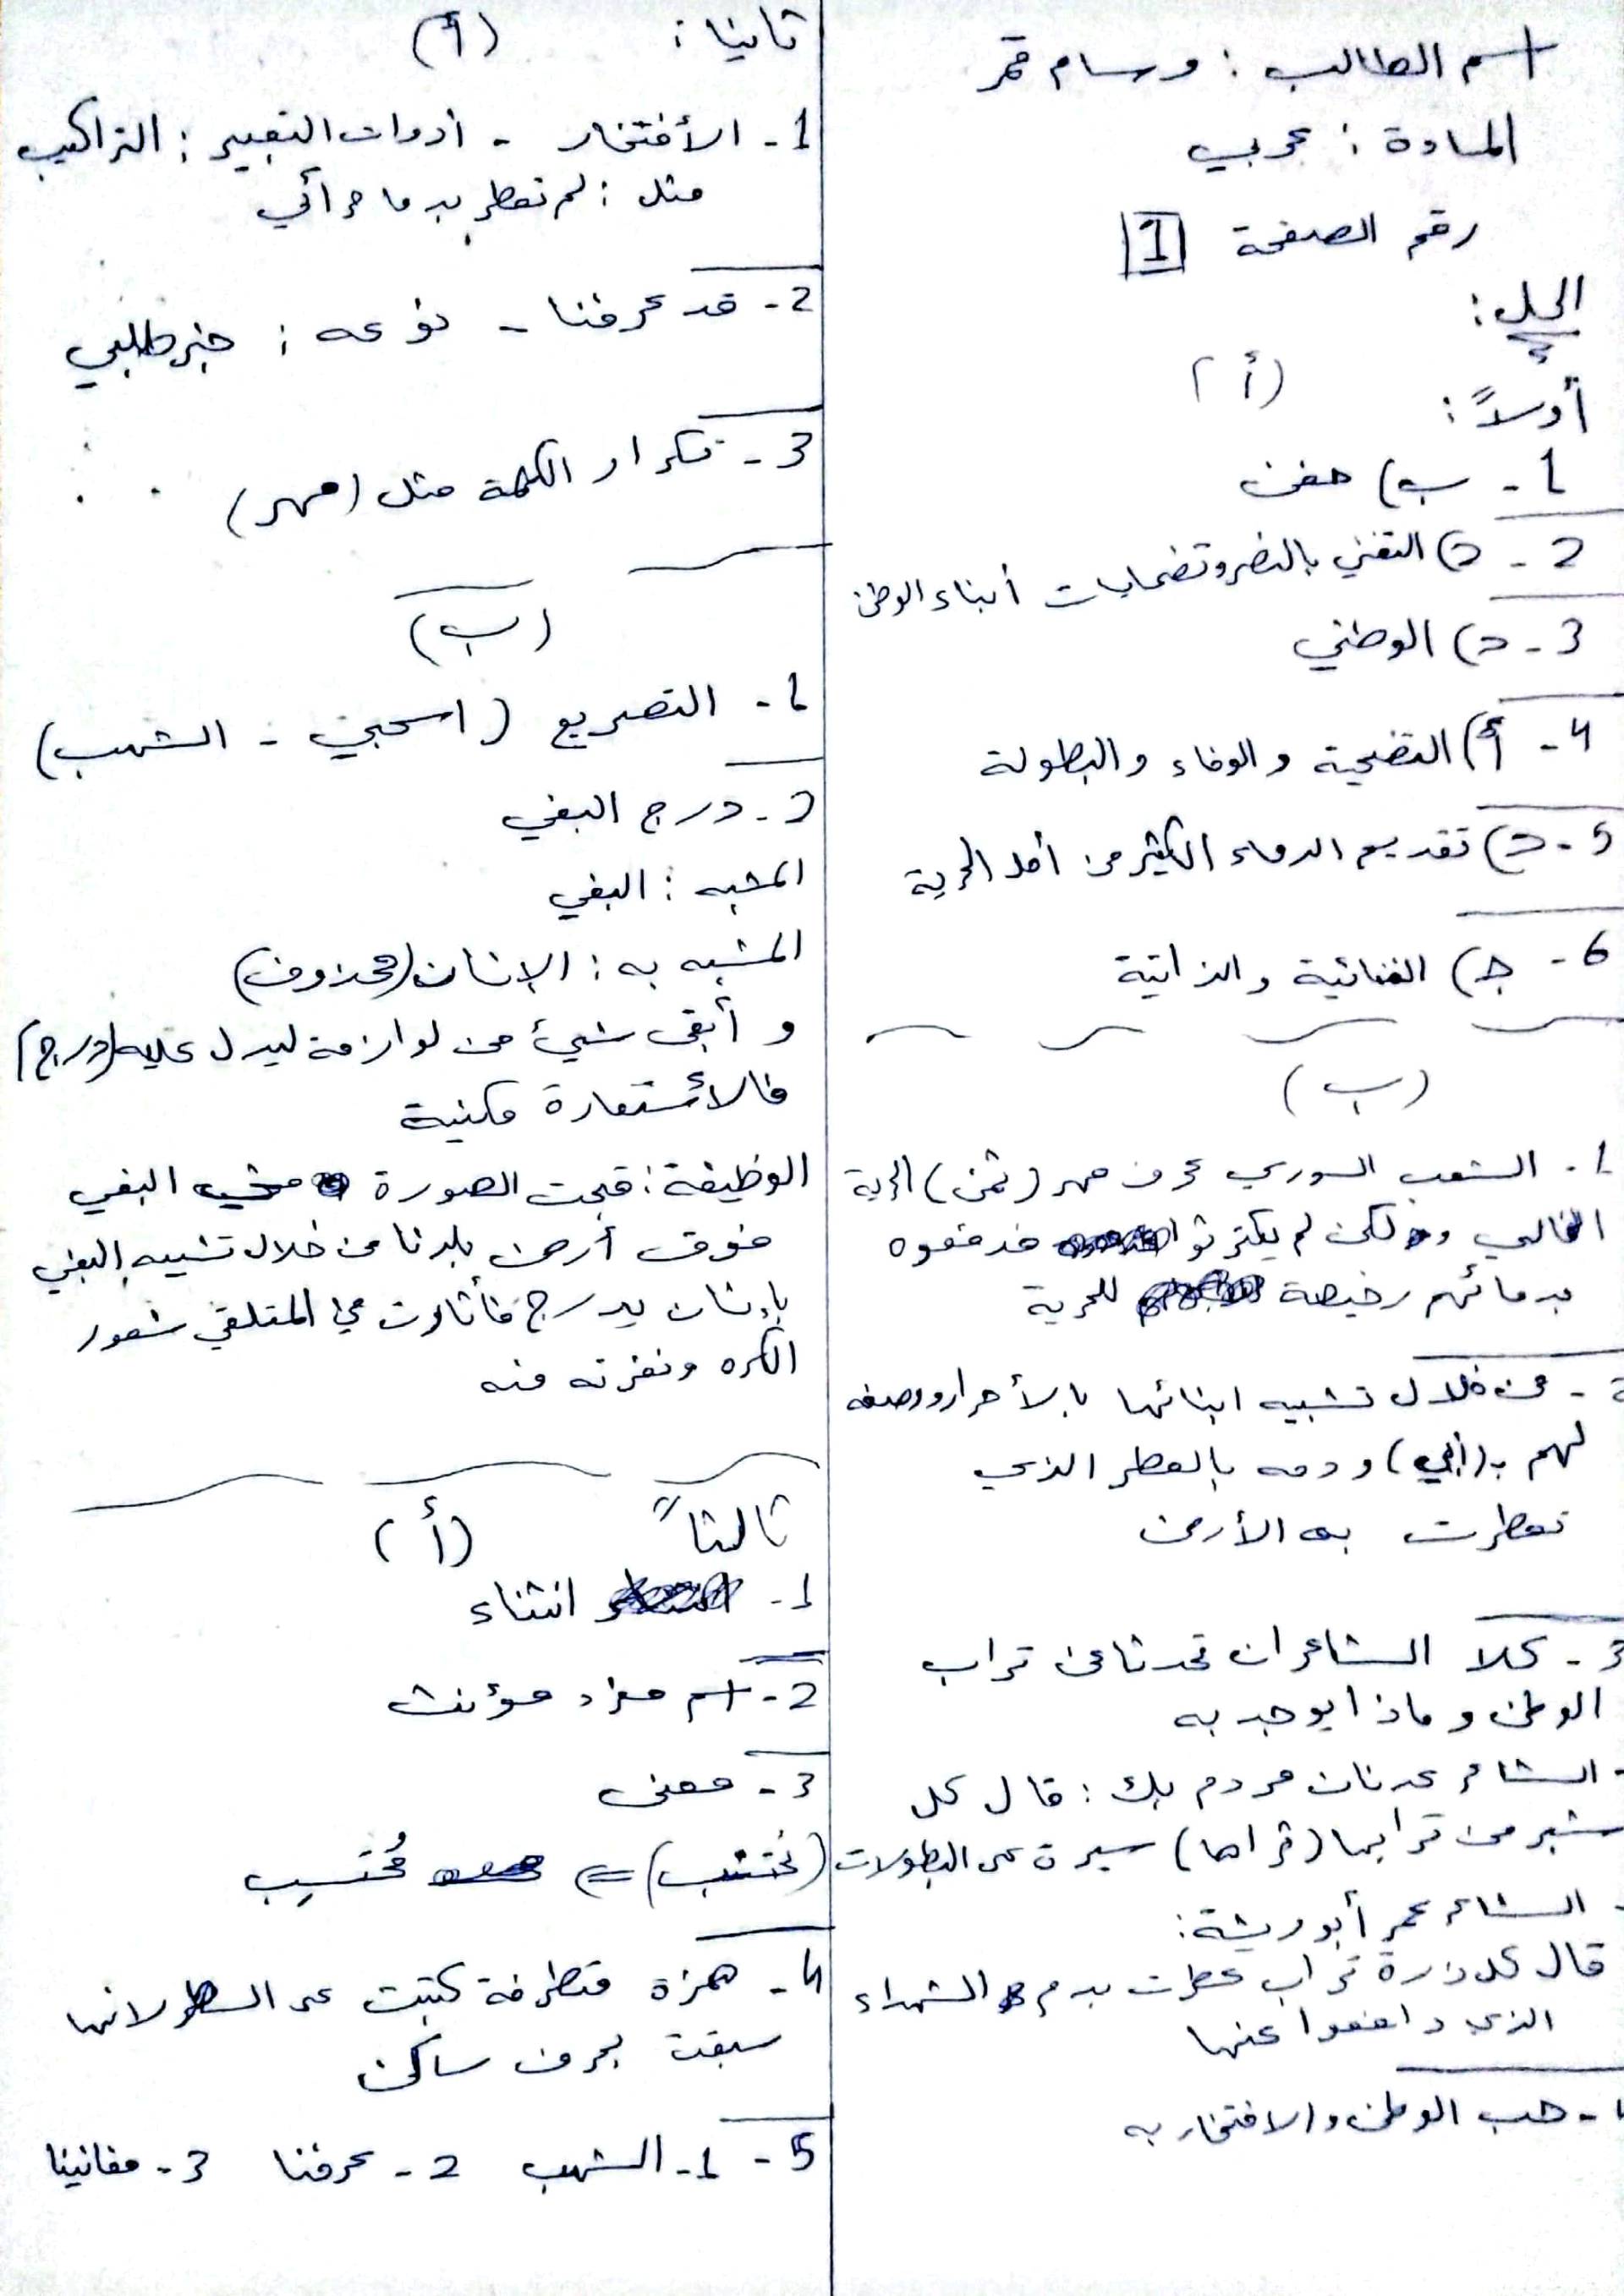 اسم الطالب : وسام قمر
المادة : عربي
رقم الصفحة 1
الحل :
أولاً : (أ)
1- ب) خفض
2- د) التغني بالنصر وتضحيات أبناء الوطن
3- د) الوطني
4- أ) التضحية والوفاء والبطولة
5- د) تقديم الدماء الكثير من أجل الحرية
6- ج) الغنائية والذاتية
(ب)
1- الشعب السوري عرف مهر (ثمن) الحرية
الغالي ولكن لم يكترثوا فدفعوه
بدمائهم رخيصة للحرية
- من خلال تشبيه ابنائها بالأحرار ووصفه
لهم بـ (أبي) ودمه بالعطر الذي
تعطرت به الأرض
3- كلا الشاعران تحدثا عن تراب
الوطن وماذا يوجد به
- الشاعر عدنان مردم بك : قال كل
شبر من ترابها (ثراها) سيرة عن البطولات
- الشاعر عمر أبو ريشة :
قال كل ذرة تراب عطرت بدم الشهداء
الذي دافعوا عنها
4- حب الوطن والافتخار به
ثانيا : (أ)
1- الأفتخار - أدوات التعبير : التراكيب
مثل : لم تعطر بدما حر أبي
2- قد عرفنا - نوعه : خبر طلبي
3- تكرار الكلمة مثل (مهر)
(ب)
1- التصريع (اسحبي - الشهب)
2- درج البغي
المشبه : البغي
المشبه به : الإنسان (محذوف)
و أبقى شيئ من لوازمة ليدل عليه (درج)
فالأستعارة مكنية
الوظيفة : قبحت الصورة البغي
فوق أرض بلدنا من خلال تشبيه البغي
بإنسان يدرج فأثارت في المتلقي شعور
الكره ونفرته منه
ثالثاً (أ)
1- انثناء
2- اسم مفرد مؤنث
3- معنى
(نحتسب) ⇐ مُحتسِب
4- همزة متطرفة كتبت على السطر لانها
سبقت بحرف ساكن
5- 1- الشهب 2- عرفنا 3- مغانينا